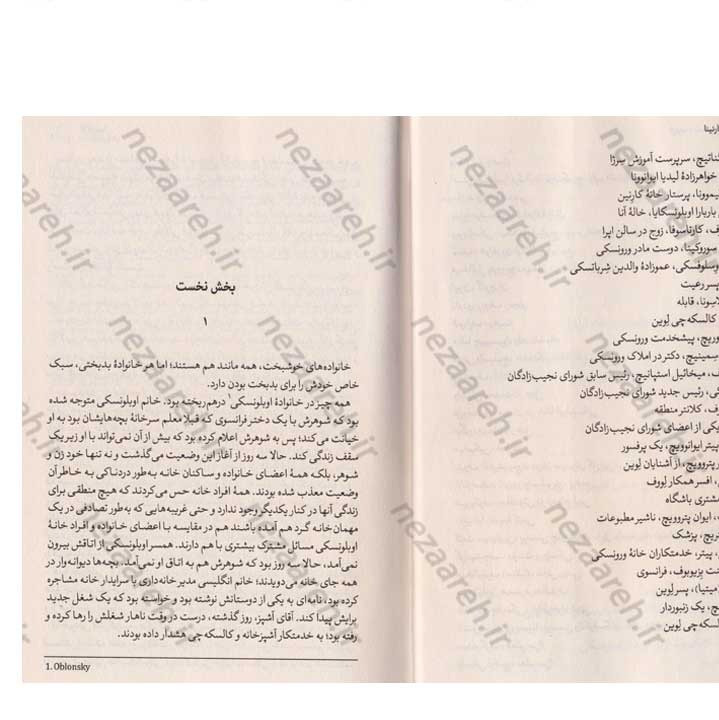 ارنینا
سرپرست آموزش سرژا
خواهرزادهٔ لیدیا ایوانوونا
پرستار خانهٔ کارنین
باربارا اوبلونسکایا، خالهٔ آنا
کارتاسوفا، زوج در سالن اپرا
سوروکینا، دوست مادر ورونسکی
عموزادهٔ والدین شرباتسکی
پسر رعیت
قابله
کالسکه‌چی لوین
پیشخدمت ورونسکی
دکتر در املاک ورونسکی
میخائیل استپانیچ، رئیس سابق شورای نجیب‌زادگان
رئیس جدید شورای نجیب‌زادگان
کلانتر منطقه
یکی از اعضای شورای نجیب‌زادگان
پیتر ایوانوویچ، یک پرفسور
پتروویچ، از آشنایان لوین
افسر همکار لووف
مشتری باشگاه
ایوان پتروویچ، ناشیر مطبوعات
پزشک
پیتر، خدمتکاران خانهٔ ورونسکی
بزیوبوف، فرانسوی
(میتیا)، پسر لوین
یک زنبوردار
کالسکه‌چی لوین
بخش نخست
۱
خانواده‌های خوشبخت، همه مانند هم هستند؛ اما هر خانوادهٔ بدبختی، سبک
خاص خودش را برای بدبخت بودن دارد.
همه چیز در خانوادهٔ اوبلونسکی۱ درهم ریخته بود. خانم اوبلونسکی متوجه شده
بود که شوهرش با یک دختر فرانسوی که قبلا معلم سرخانهٔ بچه‌هایشان بود به او
خیانت می‌کند؛ پس به شوهرش اعلام کرده بود که بیش از آن نمی‌تواند با او زیر یک
سقف زندگی کند. حالا سه روز از آغاز این وضعیت می‌گذشت و نه تنها خود زن و
شوهر، بلکه همهٔ اعضای خانواده و ساکنان خانه به‌طور دردناکی به خاطر آن
وضعیت معذب شده بودند. همهٔ افراد خانه حس می‌کردند که هیچ منطقی برای
زندگی آنها در کنار یکدیگر وجود ندارد و حتی غریبه‌هایی که به‌طور تصادفی در یک
مهمان‌خانه گرد هم آمده باشند هم در مقایسه با اعضای خانواده و افراد خانهٔ
اوبلونسکی مسائل مشترک بیشتری با هم دارند. همسر اوبلونسکی از اتاقش بیرون
نمی‌آمد، حالا سه روز بود که شوهرش هم به اتاق او نمی‌آمد. بچه‌ها دیوانه‌وار در
همه جای خانه می‌دویدند؛ خانم انگلیسی مدیر خانه‌داری با سرایدار خانه مشاجره
کرده بود، نامه‌ای به یکی از دوستانش نوشته بود و خواسته بود که یک شغل جدید
برایش پیدا کند. آقای آشپز، روز گذشته، درست در وقت ناهار شغلش را رها کرده و
رفته بود؛ به خدمتکار آشپزخانه و کالسکه‌چی هشدار داده بودند.
1. Oblonsky
nezaareh.ir